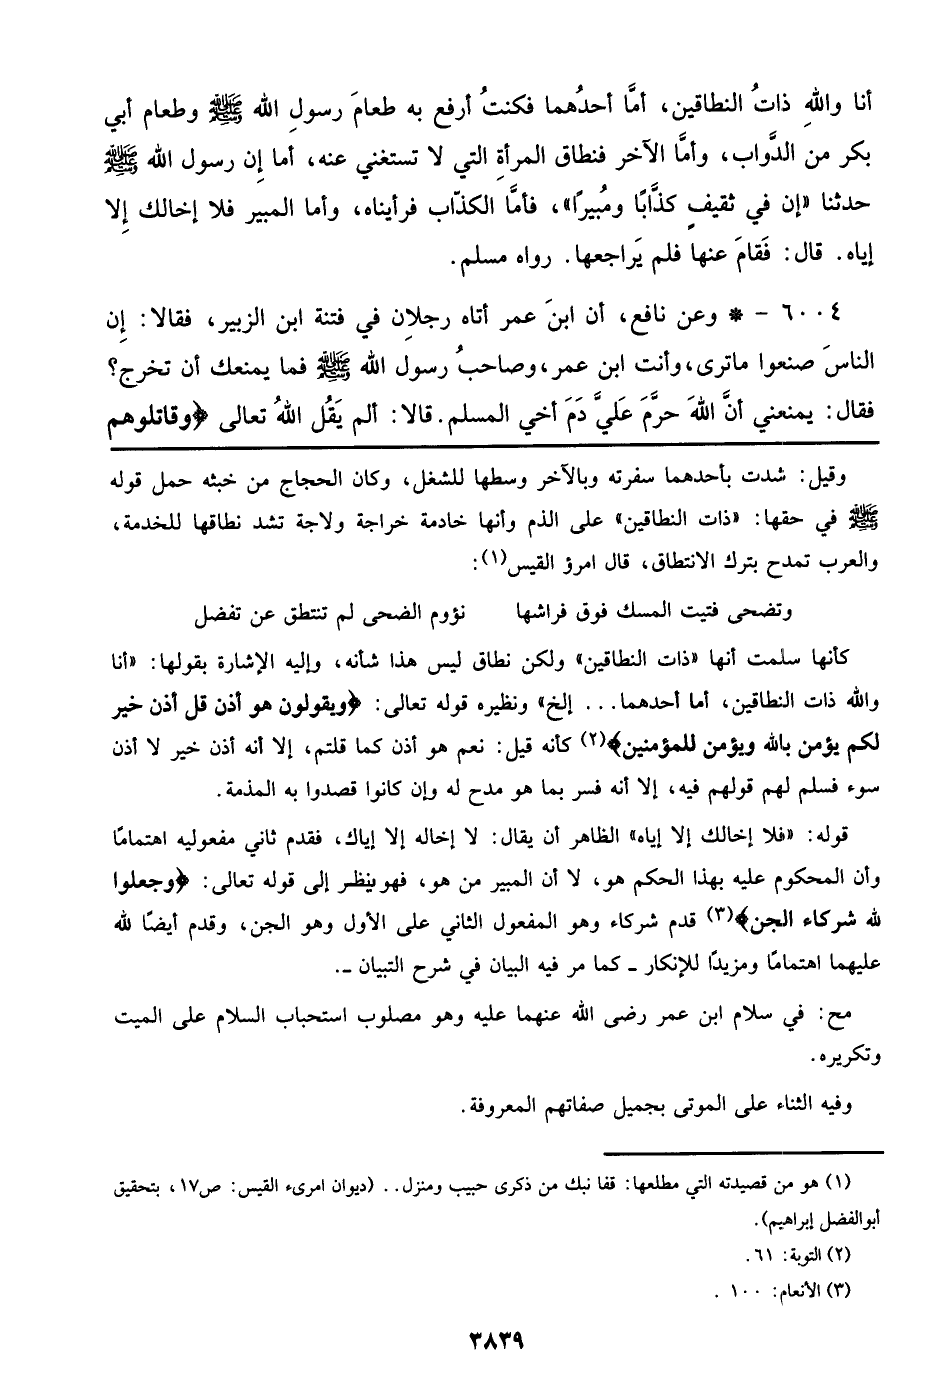 أنا واللهِ ذاتُ النطاقين، أمَّا أحدُهما فكنتُ أرفع به طعامَ رسولِ الله ﷺ وطعام أبي
بكر من الدَّواب، وأمَّا الآخر فنطاق المرأةِ التي لا تستغني عنه، أما إن رسول الله ﷺ
حدثنا «إن في ثقيفٍ كذَّابًا ومُبيرًا»، فأمَّا الكذّاب فرأيناه، وأما المبير فلا إخالك إِلا
إياه. قال: فَقامَ عنها فلم يَراجعها. رواه مسلم.
٦٠٠٤ - * وعن نافع، أن ابنَ عمر أتاه رجلانِ في فتنة ابن الزبير، فقالا: إِن
الناسَ صنعوا ماترى،وأنت ابن عمر،وصاحبُ رسول الله ﷺ فما يمنعك أن تخرج؟
فقال: يمنعني أنَّ اللهَ حرَّمَ عَليَّ دَمَ أخي المسلم. قالا: ألم يَقُل اللهُ تعالى ﴿وقاتلوهم
وقيل: شدت بأحدهما سفرته وبالآخر وسطها للشغل، وكان الحجاج من خبثه حمل قوله
ﷺ في حقها: «ذات النطاقين» على الذم وأنها خادمة خراجة ولاجة تشد نطاقها للخدمة،
والعرب تمدح بترك الانتطاق، قال امرؤ القيس(١):
وتضحى فتيت المسك فوق فراشها نؤوم الضحى لم تنتطق عن تفضل
كأنها سلمت أنها «ذات النطاقين» ولكن نطاق ليس هذا شأنه، وإليه الإشارة بقولها: «أنا
والله ذات النطاقين، أما أحدهما... إلخ» ونظيره قوله تعالى: ﴿ويقولون هو أذن قل أذن خير
لكم يؤمن بالله ويؤمن للمؤمنين﴾(٢) كأنه قيل: نعم هو أذن كما قلتم، إلا أنه أذن خير لا أذن
سوء فسلم لهم قولهم فيه، إلا أنه فسر بما هو مدح له وإن كانوا قصدوا به المذمة.
قوله: «فلا إخالك إلا إياه» الظاهر أن يقال: لا إخاله إلا إياك، فقدم ثاني مفعوليه اهتمامًا
وأن المحكوم عليه بهذا الحكم هو، لا أن المبير من هو، فهو ينظر إلى قوله تعالى: ﴿وجعلوا
لله شركاء الجن﴾(٣) قدم شركاء وهو المفعول الثاني على الأول وهو الجن، وقدم أيضًا لله
عليهما اهتمامًا ومزيدًا للإنكار ـ كما مر فيه البيان في شرح التبيان ـ.
مح: في سلام ابن عمر رضى الله عنهما عليه وهو مصلوب استحباب السلام على الميت
وتكريره.
وفيه الثناء على الموتى بجميل صفاتهم المعروفة.
(١) هو من قصيدته التي مطلعها: قفا نبك من ذكرى حبيب ومنزل.. (ديوان امرىء القيس: ص١٧، بتحقيق
أبوالفضل إبراهيم).
(٢) التوبة: ٦١.
(٣) الأنعام: ١٠٠ .
٣٨٣٩